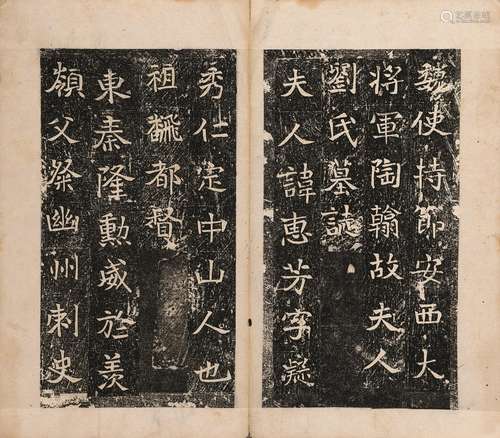 魏使持節安西大
將軍陶翰故夫人
劉氏墓誌
夫人諱惠芳字凝
秀仁定中山人也
祖都督
東秦隆勳威於羨
嶺父粲幽州刺史